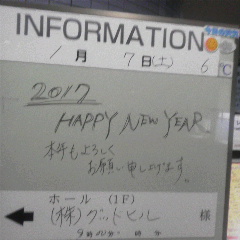 INFORMATION
1月 7日(土) 6℃
2017
HAPPY NEW YEAR
本年もよろしく
お願い申し上げます。
ホール (1F)
(株)グッドヒル 様